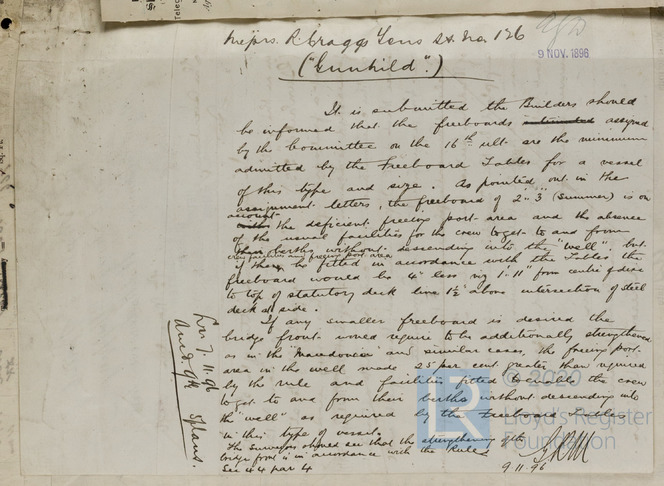 Messrs. R. Craggs & Sons Sh. No. 126
9 NOV. 1896
("Gunhild".)
It is submitted the Builders should
be informed that the freeboards assigned
by the Committee on the 16th ult. are the minimum
admitted by the Freeboard Tables for a vessel
of this type and size. As pointed out in the
assignment letters, the freeboard of 2'.. 3" (Summer) is on
account
the deficient freeing port area and the absence
of the usual facilities for the crew to get to and from
their berths without descending into the "well", but
crew facilities and freeing port area
if be fitted in accordance with the Tables the
freeboard would be 4" less viz 1'. 11" from centre of disc
to top of statutory deck line 1½" above intersection of steel
deck at side.
If any smaller freeboard is desired the
bridge front would require to be additionally strengthened
as in the "Macedonia" and similar cases, the freeing port
area in the well made 25 per cent greater than required
by the rule and facilities fitted to enable the crew
to get to and from their berths without descending into
the "well" as required by the Freeboard Tables
in this type of vessel.
The Surveyors should see that the strengthening of the
bridge front is in accordance with the Rules
Sec 44 par 4
9.11.96
7.11.96
plans.
© 2020
Lloyd's Register
Foundation
LR